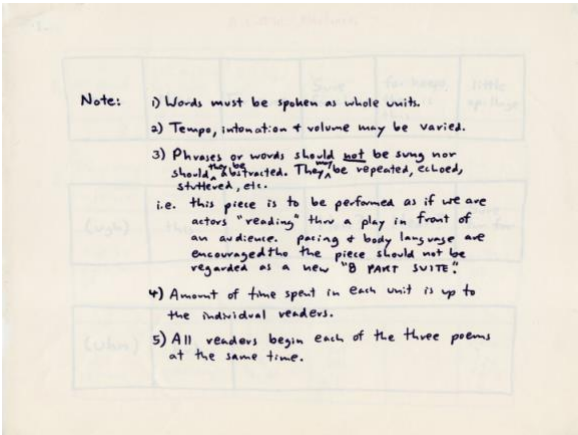 Note: 1) Words must be spoken as whole units.
2) Tempo, intonation + volume may be varied.
3) Phrases or words should not be sung nor
should they be abstracted. They may be repeated, echoed,
stuttered, etc.
i.e. this piece is to be performed as if we are
actors "reading" thru a play in front of
an audience. pacing + body language are
encouraged tho the piece should not be
regarded as a new "8 PART SUITE".
4) Amount of time spent in each unit is up to
the individual readers.
5) All readers begin each of the three poems
at the same time.
(ugh)
(uhm)